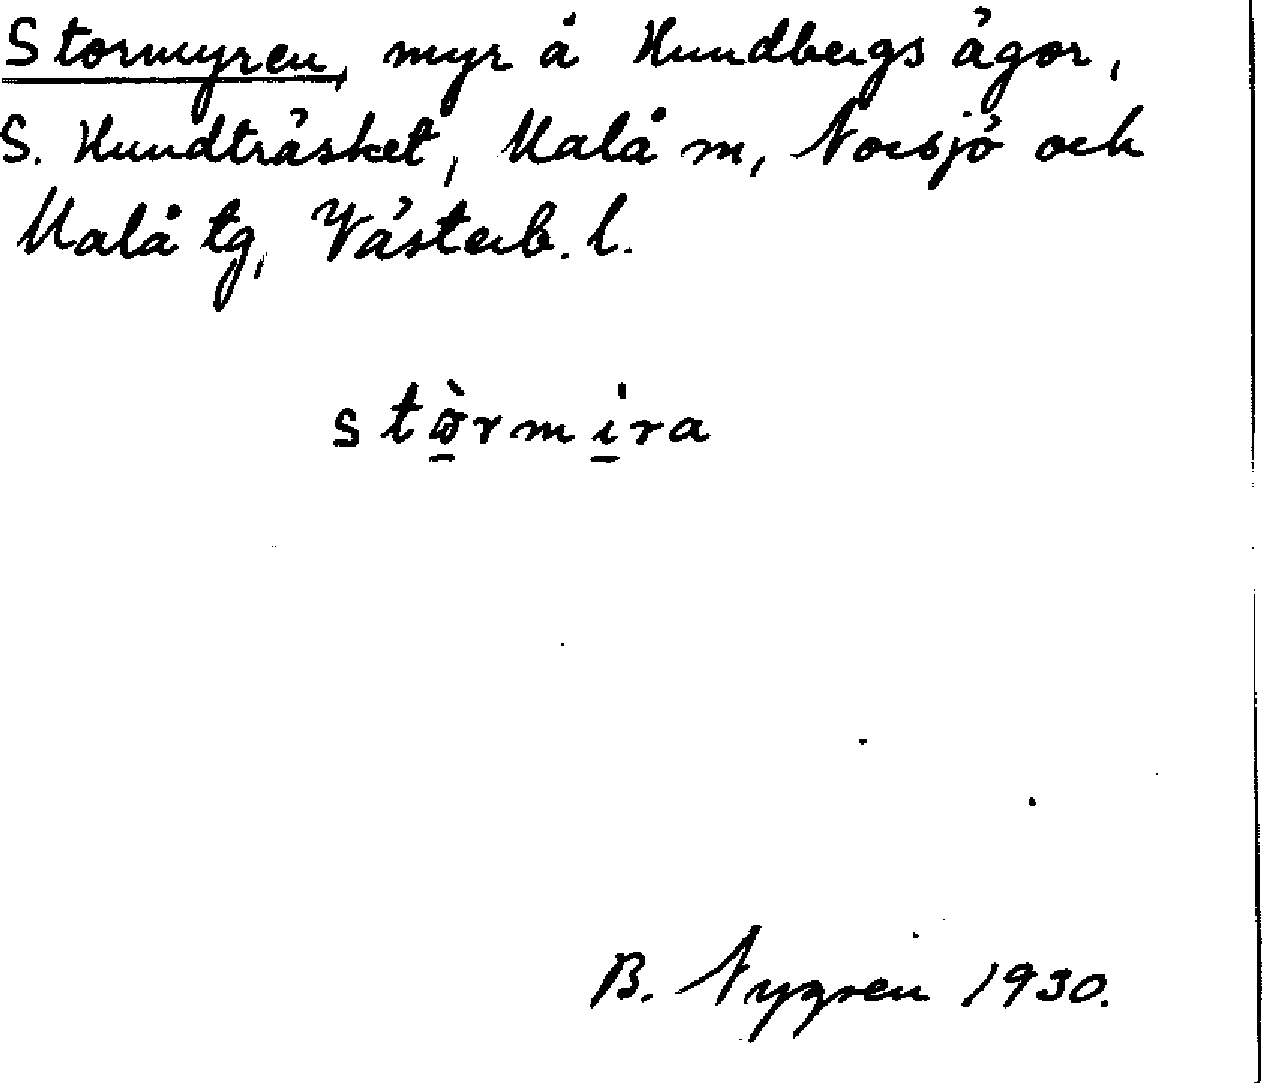 Stormyren, myr å Hundbergs ägor,
S. Hundträsket, Malå sn, Norsjö och
Malå tg, Västerb. l.
stòrmira
B. Nygren 1930.